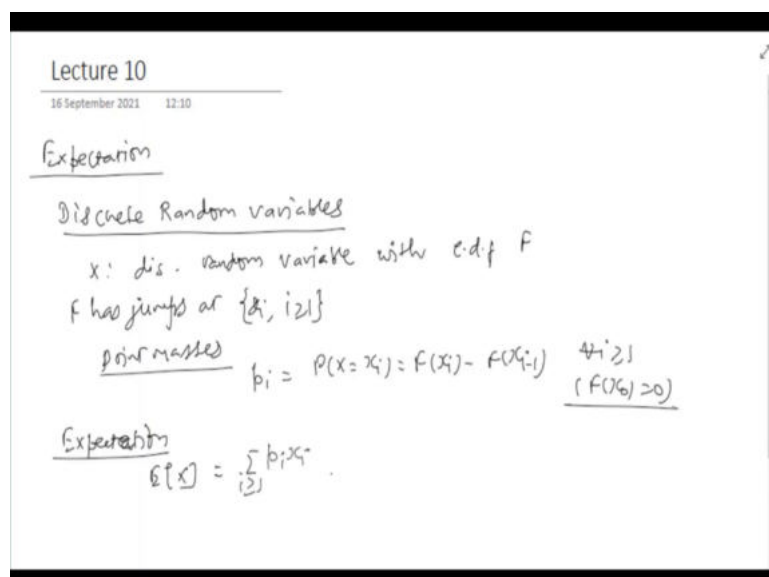 Lecture 10
16 September 2021 12:10
Expectation
Discrete Random variables
X: dis. random variable with c.d.f F
F has jumps at {xi, i≥1}
point masses pi = P(X = xi) = F(xi) - F(xi-1) ∀i≥1
(F(x0) = 0)
Expectation
E[X] = Σ i≥1 pixi .